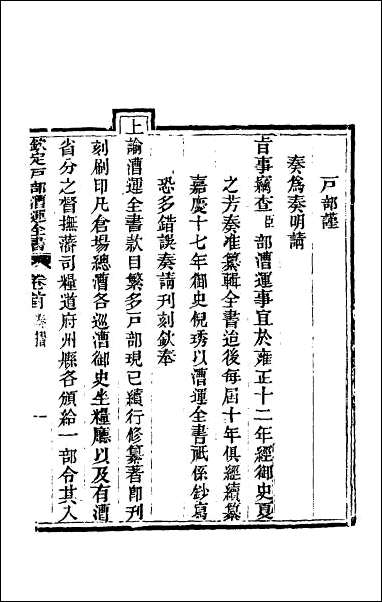 戶部謹
奏爲奏明請
旨事竊查臣部漕運事宜於雍正十二年經御史夏
之芳奏准纂輯全書迨後每屆十年俱經續纂
嘉慶十七年御史倪琇以漕運全書祇係鈔寫
恐多錯誤奏請刊刻欽奉
上諭漕運全書款目繁多戶部現已續行修纂著卽刊
刻刷印凡倉場總漕各巡漕御史坐糧廳以及有漕
省分之督撫藩司糧道府州縣各頒給一部令其入
欽定戶部漕運全書 卷首 奏摺 一